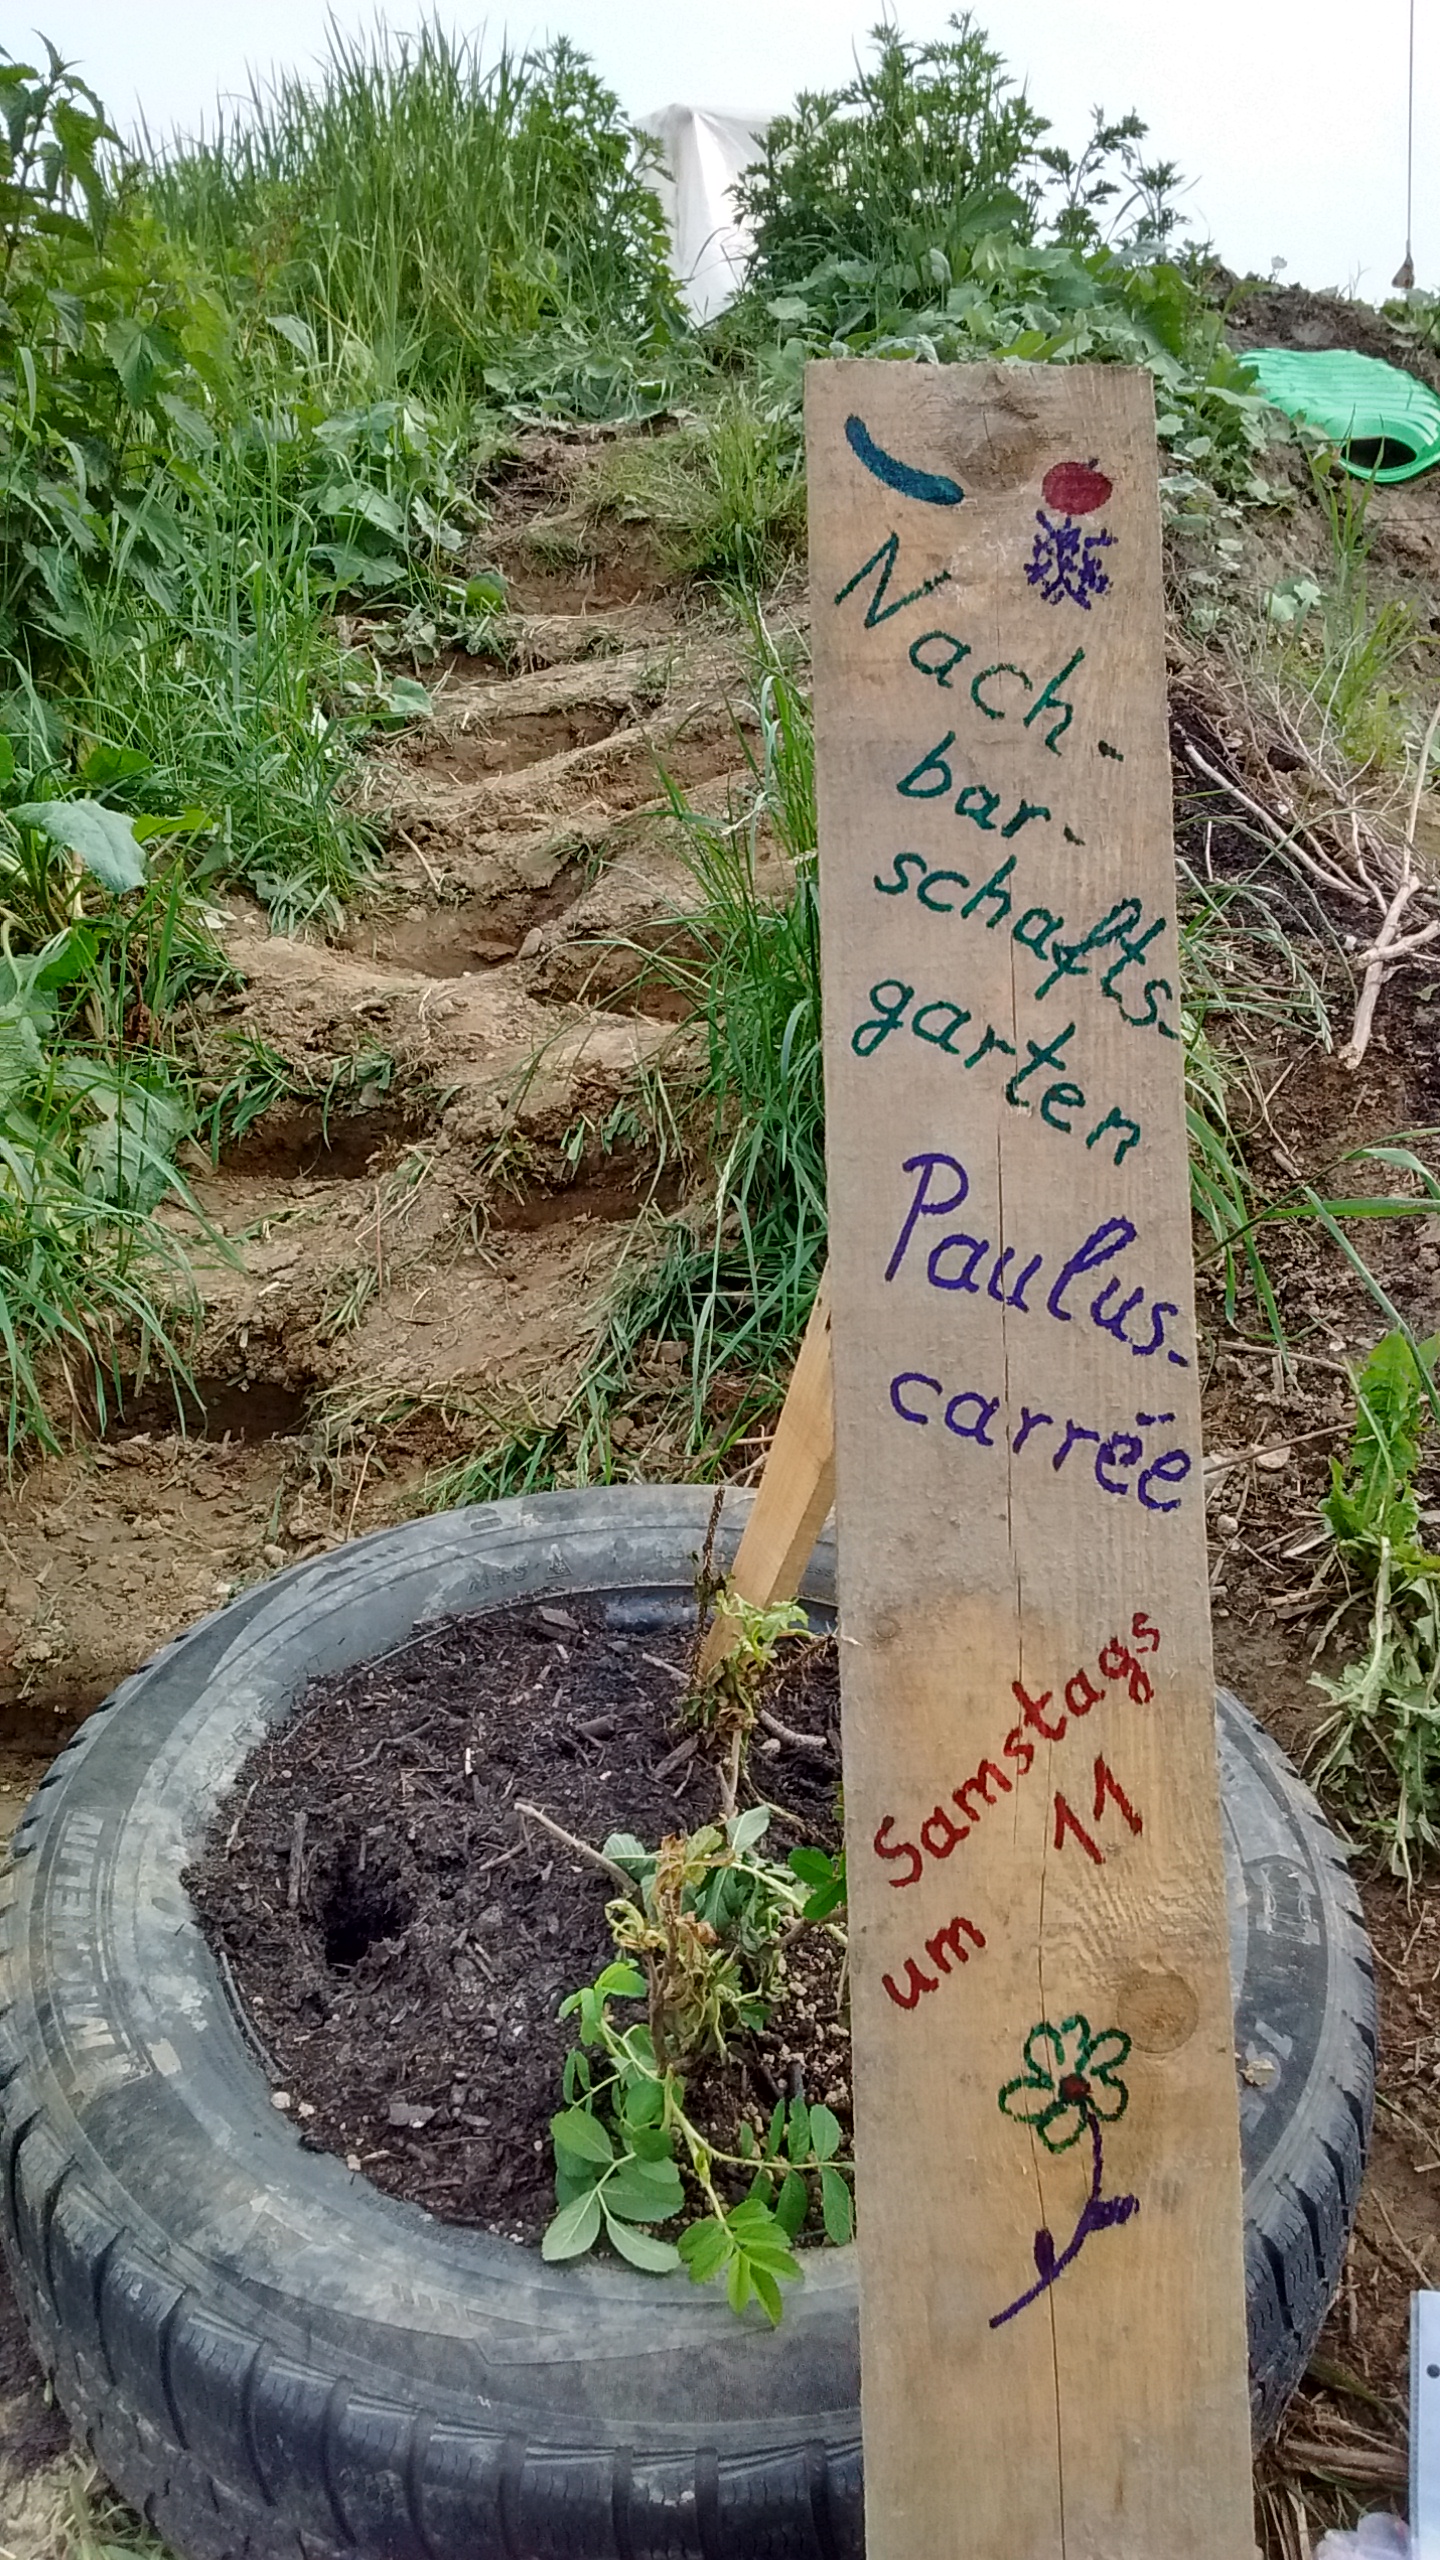 Nach-
bar-
schafts-
garten
Paulus-
carrée
Samstags
um 11
MICHELIN
M+S